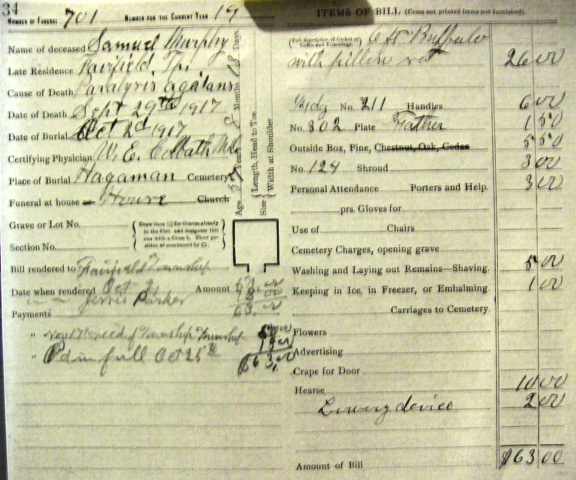 34
NUMBER OF FUNERAL 701 NUMBER FOR THE CURRENT YEAR 19
Name of deceased Samuel Murphy
Late Residence Fairfield, Tp.
Cause of Death Paralysis agatans
Date of Death Sept 29th 1917
Date of Burial Oct 2d 1917
Certifying Physician W. E. Colbath M.D.
Place of Burial Hagaman Cemetery
Funeral at house or House Church
Grave or Lot No.
Section No.
Age Years Months Days
Size { Length, Head to Toe. Width at Shoulder
Bill rendered to Fairfield Township
Date when rendered Oct Amount
Jessie Parker
Payments 63.00
" of Township
" Pd in full Oct 25th $63.00
ITEMS OF BILL (Cross out printed items not furnished).
6 ft Buffalo
with pillow 26 00
No. 211 Handles 6 00
No. 802 Plate Father 1 50
Outside Box, Pine, Chestnut, Oak, Cedar 5 50
No. 124 Shroud 3 00
Personal Attendance Porters and Help. 3 00
prs. Gloves for
Use of Chairs
Cemetery Charges, opening grave
Washing and Laying out Remains—Shaving. 5 00
Keeping in Ice, in Freezer, or Embalming 1 00
Carriages to Cemetery.
Flowers
Advertising
Crape for Door
Hearse 10 00
Lowering device 2 00
Amount of Bill $63 00